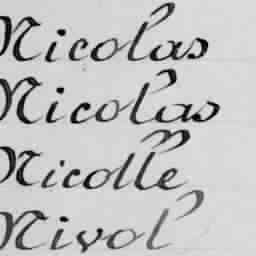 Nicolas
Nicolas
Nicolle
Nivol